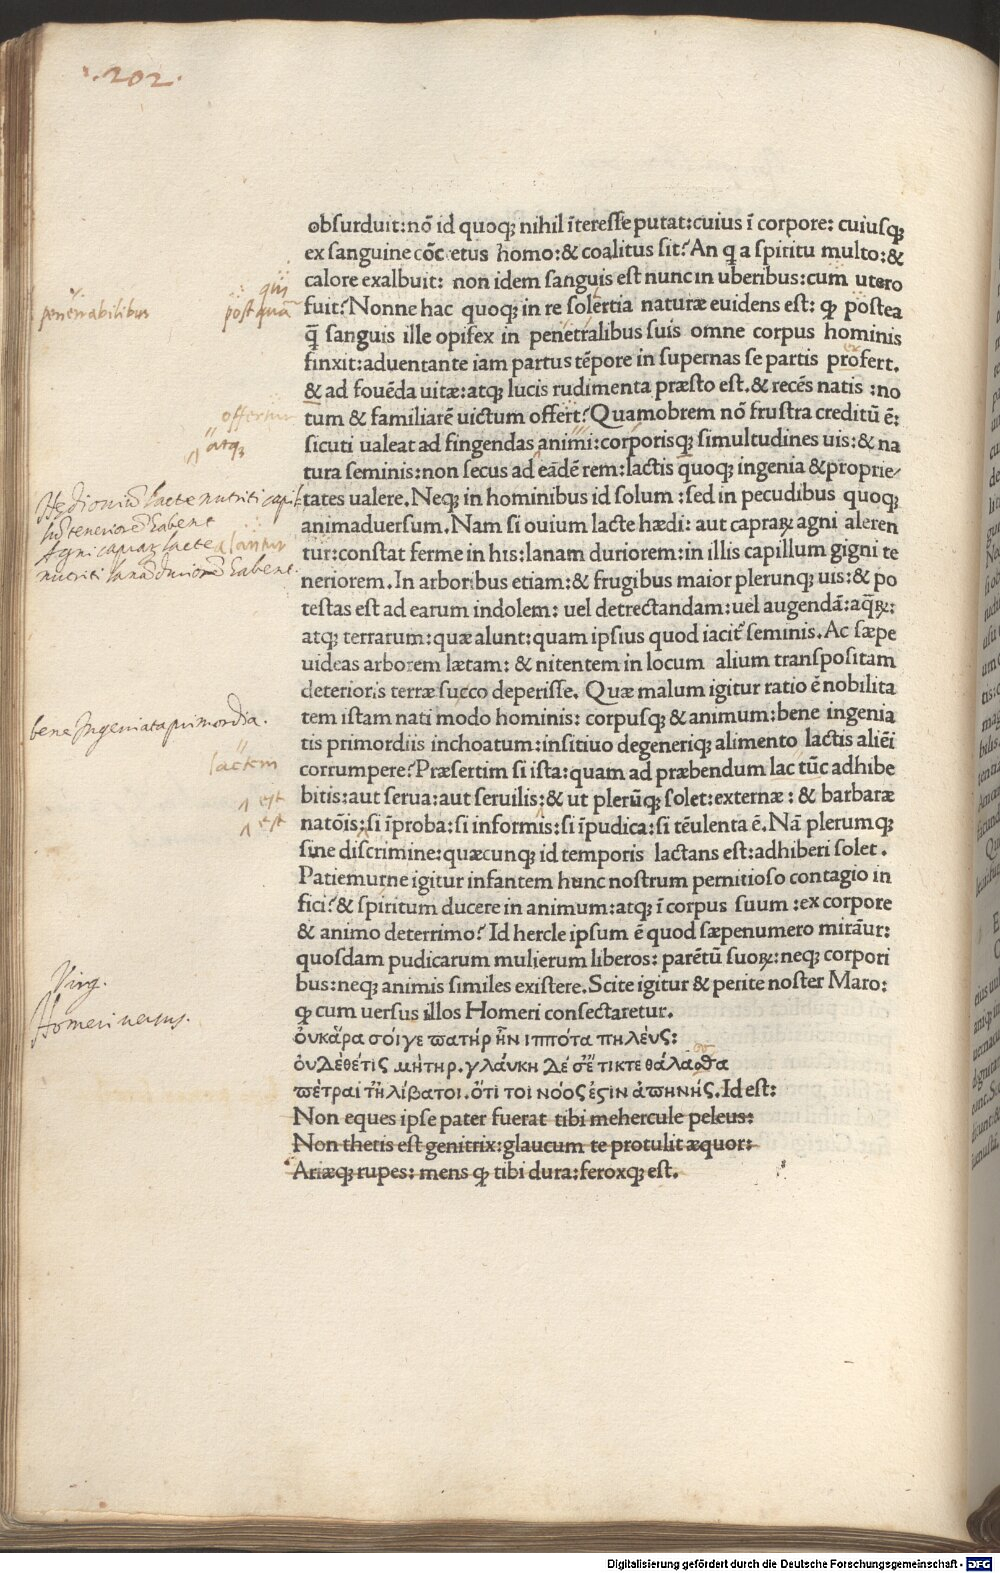 .202.
obsurduit:nō id quoqꝫ nihil īteresse putat:cuius ī corpore: cuiusqꝫ
ex sanguine cōcetus homo:& coalitus sit? An q a spiritu multo:&
calore exalbuit: non idem sanguis est nunc in uberibus:cum utero
qui
postquā
penetrabilibus
fuit? Nonne hac quoqꝫ in re solertia naturæ euidens est: ꝙ postea
q̄ sanguis ille opifex in penetralibus suis omne corpus hominis
finxit:aduentante iam partus tēpore in supernas se partis profert.
& ad fouēda uitæ:atqꝫ lucis rudimenta præsto est.& recēs natis :no
offertur
tum & familiarē uictum offert? Quamobrem nō frustra creditū ē:
atqꝫ
sicuti ualeat ad fingendas animi:corporisqꝫ simultudines uis:& na
tura seminis:non secus ad eādē rem:lactis quoqꝫ ingenia & proprie
Hedi oniū lacte nutriti capil
lū teneriorē habent
Agni capraꝝ lacte
nutriti lanā duriorē habent.
tates ualere. Neqꝫ in hominibus id solum :sed in pecudibus quoqꝫ
animaduersum. Nam si ouium lacte hædi: aut capraꝝ agni aleren
alantur
tur:constat ferme in his:lanam duriorem:in illis capillum gigni te
neriorem. In arboribus etiam:& frugibus maior plerunqꝫ uis:& po
testas est ad earum indolem: uel detrectandam:uel augendā:aq̄ꝝ:
atqꝫ terrarum:quæ alunt:quam ipsius quod iacit seminis. Ac sæpe
uideas arborem lætam: & nitentem in locum alium transpositam
deterioris terræ succo deperisse. Quæ malum igitur ratio ē nobilita
bene Ingeniata primordia.
tem istam nati modo hominis: corpusqꝫ & animum:bene ingenia
tis primordiis inchoatum:insitiuo degeneriqꝫ alimento lactis aliēi
lactem
corrumpere? Præsertim si ista:quam ad præbendum lac tūc adhibe
est
bitis:aut serua:aut seruilis:& ut plerūqꝫ solet:externæ : & barbaræ
est
natōis:si īproba:si informis:si īpudica:si tēulenta ē. Nā plerumqꝫ
sine discrimine:quæcunqꝫ id temporis lactans est:adhiberi solet .
Patiemurne igitur infantem hunc nostrum pernitioso contagio in
fici? & spiritum ducere in animum:atqꝫ ī corpus suum :ex corpore
& animo deterrimo? Id hercle ipsum ē quod sæpenumero mirāur:
quosdam pudicarum mulierum liberos: parētū suoꝝ:neqꝫ corpori
Virg.
bus:neqꝫ animis similes existere. Scite igitur & perite noster Maro:
Homeri uersus.
ꝙ cum uersus illos Homeri consectaretur.
ὀυκἄρα σοίγε πατήρ ἦν ιππότα πηλέυς:
ὀυδὲθέτις μήτηρ.γλάυκη δέ σἔ τικτε θάλασσα
πέτραι τἠλίβατοι.ὅτι τοι νόος ἐςιν ἀπηνής. Id est:
Non eques ipse pater fuerat tibi mehercule peleus:
Non thetis est genitrix:glaucum te protulit æquor:
Ariæqꝫ rupes: mens ꝙ tibi dura:feroxqꝫ est.
Digitalisierung gefördert durch die Deutsche Forschungsgemeinschaft - DFG